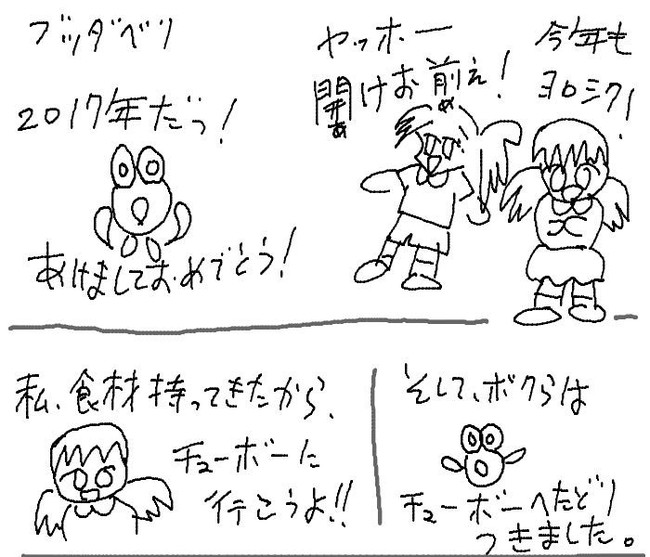 ブツダベリ
2017年だっ!
あけましておめでとう!
ヤッホー
開けお前え!
あ め
今年も
ヨロシク!
私、食材持ってきたから、
チューボーに
行こうよ!!
そして、ボクらは
チューボーへたどり
つきました。